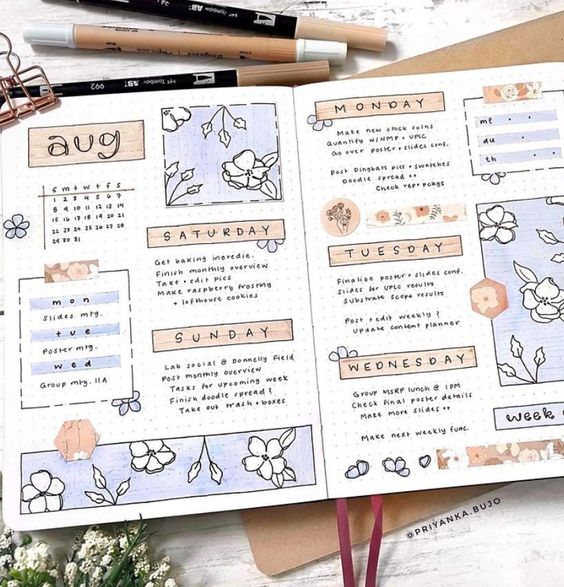 992
aug
s m t w t f s
1 2 3 4 5 6 7
8 9 10 11 12 13 14
15 16 17 18 19 20 21
22 23 24 25 26 27 28
29 30 31
mon
Slides mtg.
tue
Poster mtg.
wed
Group mtg. 11A
SATURDAY
Get baking ingredie.
Finish monthly overview
Take + edit pics
Make raspberry frosting
+ lofthouse cookies
SUNDAY
Lab social @ Donnelly Field
Post monthly overview
Tasks for upcoming week
Finish doodle spread!
Take out trash + boxes
MONDAY
Make new stock solns
Quantify w/NMR + UPLC
Go over poster + slides conf.
Post Dingbats pics + swatches
Doodle spread
Check rep + pckgs
TUESDAY
Finalize poster + slides conf.
Slides for UPLC results
Substrate scope results
Post + edit weekly!
Update content planner
WEDNESDAY
Group MSRP lunch @ 1PM
Check final poster details
Make more slides
Make next weekly func.
me
du
th
week
@PRIYANKA.BUJO